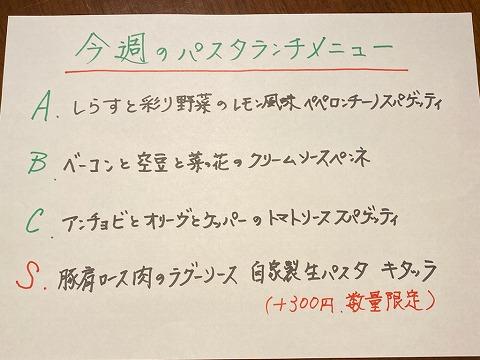 今週のパスタランチメニュー
A. しらすと彩り野菜のレモン風味ペペロンチーノスパゲッティ
B. ベーコンと空豆と菜の花のクリームソースペンネ
C. アンチョビとオリーヴとケッパーのトマトソーススパゲッティ
S. 豚肩ロース肉のラグーソース 自家製生パスタ キタッラ
(+300円、数量限定)